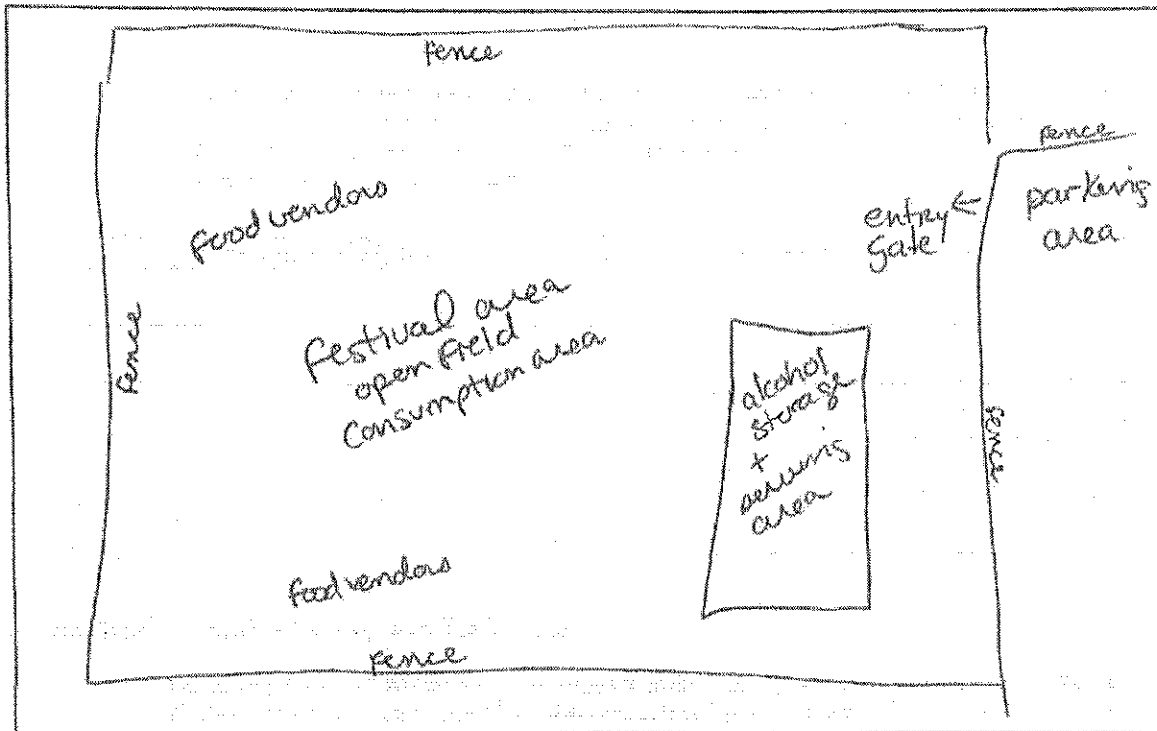 Fence
Fence
food vendors
entry ←
gate
parking
area
Festival area
open field
consumption area
Fence
alcohol
storage
+
serving
area
fence
food vendors
Fence